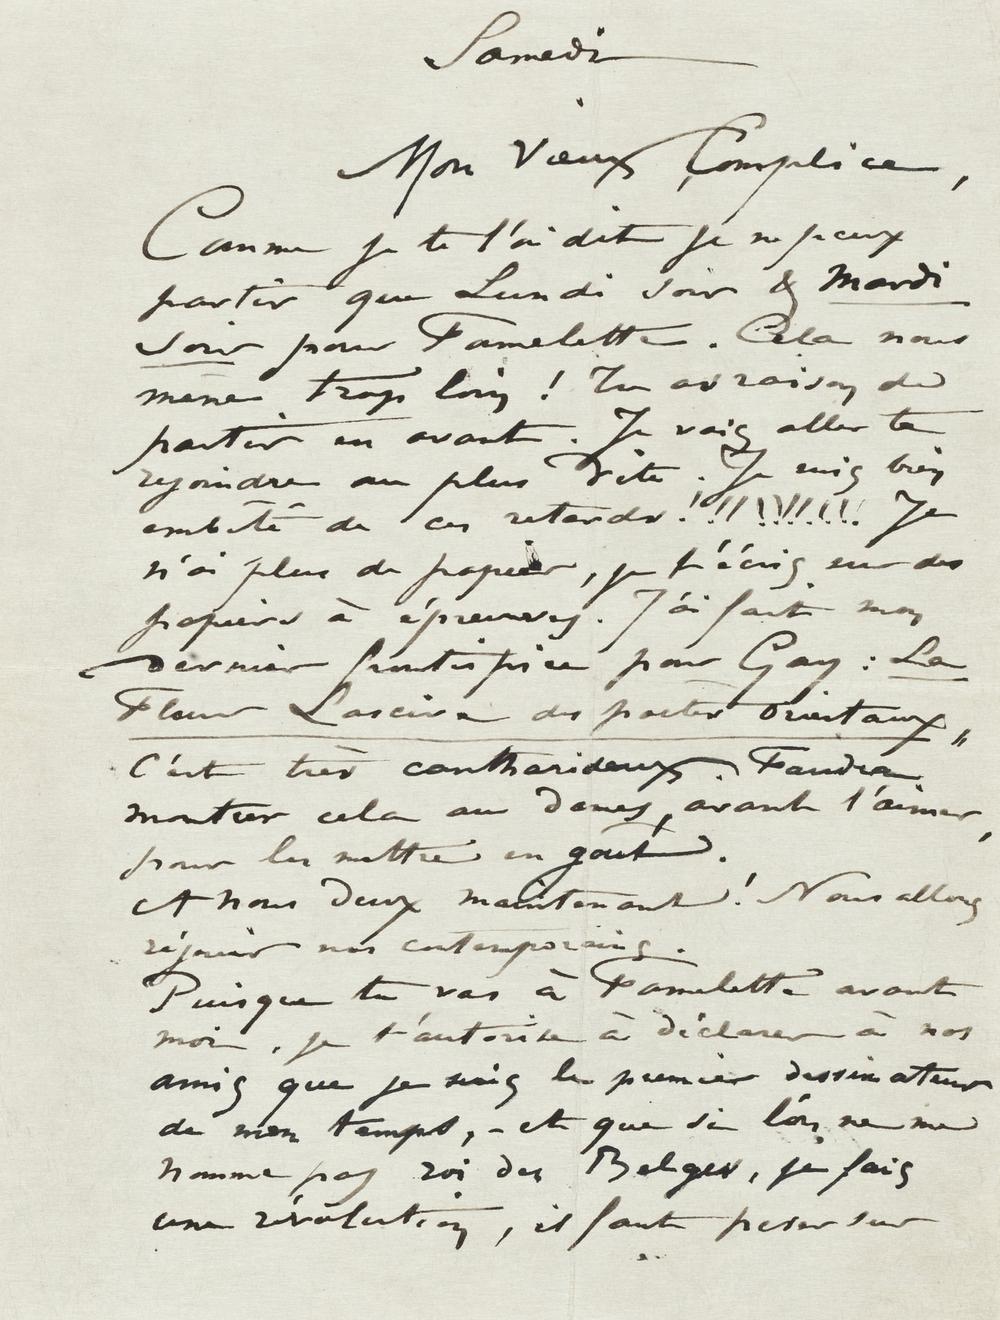 Samedi
Mon Vieux Complice,
Comme je te l'ai dit je ne peux
partir que Lundi soir & Mardi
soir pour Famelette. Cela nous
mène trop loin ! Tu as raison de
partir en avant. Je vais aller te
rejoindre au plus vite. Je suis bien
embêté de ces retards !!!!!!!!!! Je
n'ai plus de papier, je t'écris sur des
papiers à épreuves. J'ai fait mon
dernier frontispice pour Gay : La
Fleur Lascive des poètes Orientaux„
C'est très cantharideux. Faudra
montrer cela au dames, avant l'aimer,
pour les mettre en goût.
A nous deux maintenant ! Nous allons
réjouir nos contemporains.
Puisque tu vas à Famelette avant
moi, je t'autorise à déclarer à nos
amis que je suis le premier dessinateur
de mon temps, - et que si l'on ne me
nomme pas roi des Belges, je fais
une révolution, il faut peser sur